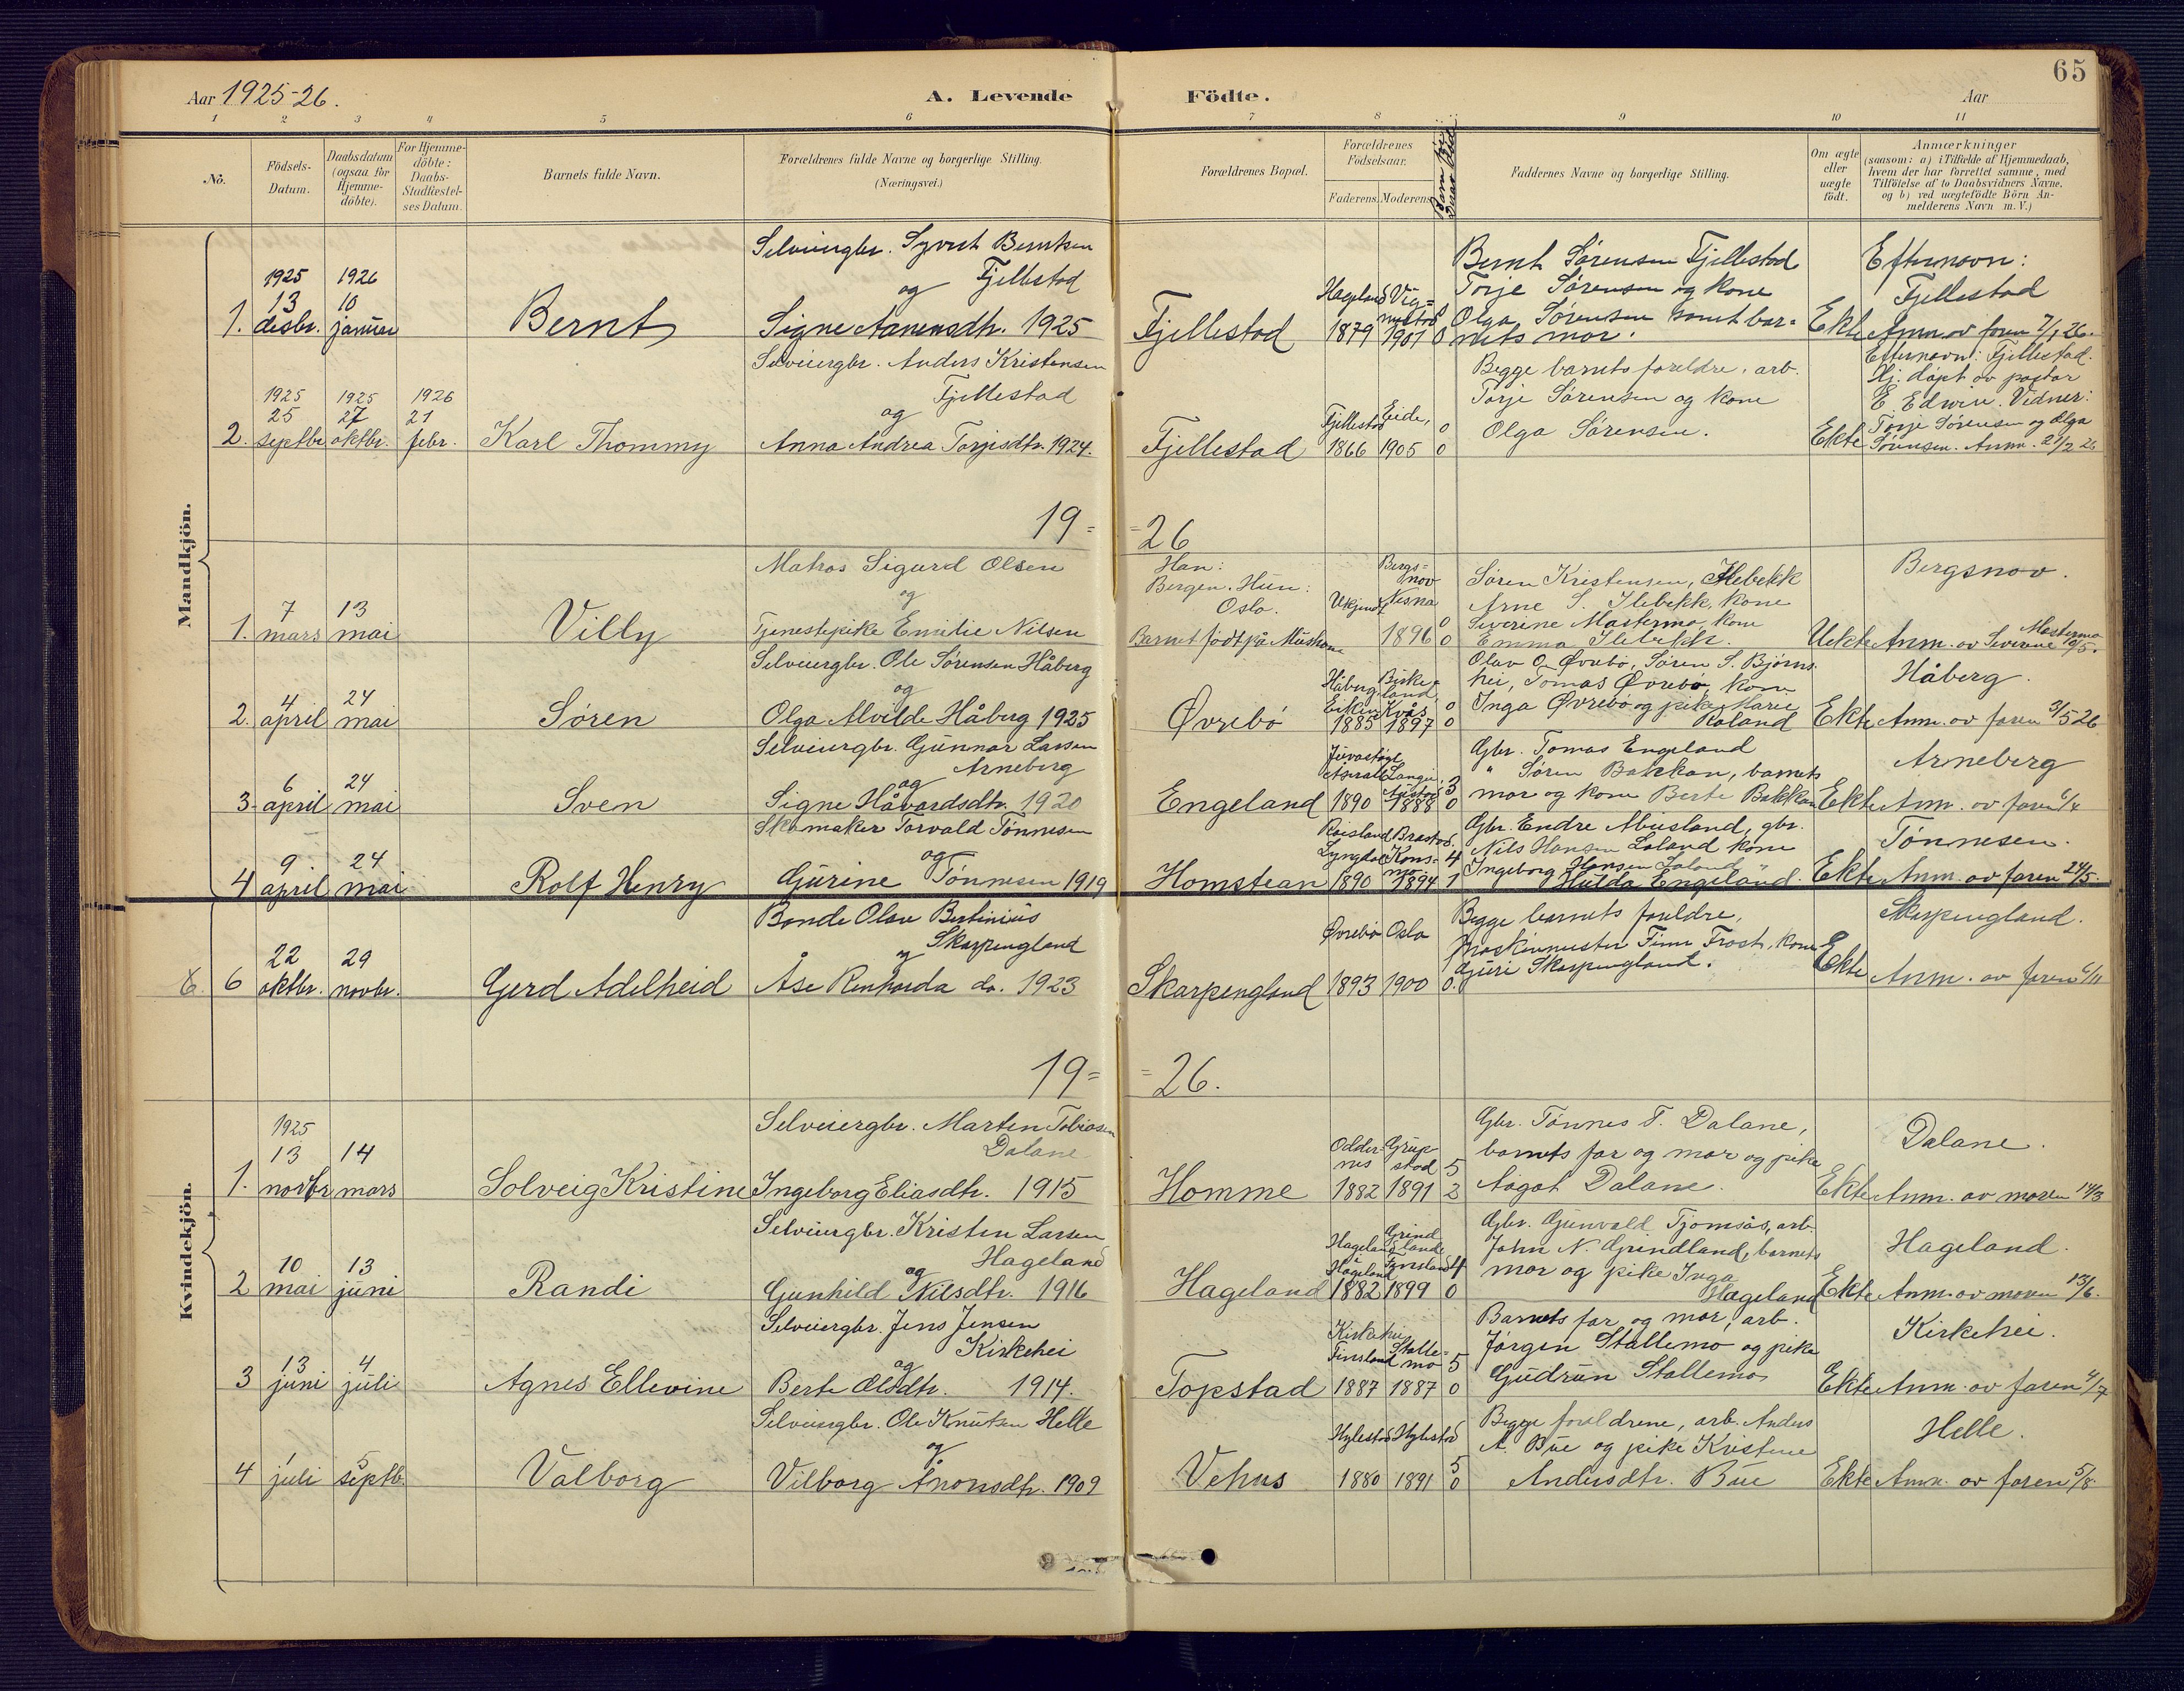 65
Aar 1925-26.
A. Levende Födte.
Aar
1 2 3 4 5 6 7 8 9 10 11
No.
Födsels-Datum.
Daabsdatum (ogsaa for Hjemme-döbte).
For Hjemme-döbte: Daabs-Stadfæstel-ses Datum.
Barnets fulde Navn.
Forældrenes fulde Navne og borgerlige Stilling.
(Næringsvei.)
Forældrenes Bopæl.
Forældrenes Födselsaar.
Faderens. Moderens.
Faddernes Navne og borgerlige Stilling.
Om ægte eller uægte födt.
Anmærkninger
(saasom: a) i Tilfælde af Hjemmedaab, hvem der har forrettet samme, med Tilföielse af to Daabsvidners Navne, og b) ved uægtefödte Börn An-melderens Navn m. V.)
Mandkjön.
1. 1925 13 desbr. 1926 10 januar
Bernt
Selveiergbr. Syvert Berntsen
Fjellestad
og
Signe Aanensdtr. 1925
Fjellestad
Hageland 1879
1901
0
Bernt Sørensen Fjellestad
Torje Sørensen og kone
Olga Sørensen samt bar-
nets mor.
Ekte
Efternavn:
Fjellestad
Anm. av faren 7/1 26.
2. 1925 25 septbr. 1925 27 oktbr. 1926 21 febr.
Karl Thommy
Selveiergbr. Anders Kristensen
Fjellestad
og
Anna Andrea Torjisdtr. 1924.
Fjellestad
Fjellestad 1866
Eide, 1905
0
0
Begge barnets foreldre, arb.
Torje Sørensen og kone
Olga Sørensen.
Ekte
Efternavn: Fjellestad.
Hj. døpt av pastor
E. Edwin. Vidner:
Torje Sørensen og Olga
Sørensen. Anm. 21/2 26
19= =26
1. 7 mars 13 mai
Villy
Matros Sigurd Olsen
og
Tjenestepike Emilie Nilsen
Han:
Bergen. Hun:
Oslo.
Barnet født på
Ukjendt
Bergs=
nov
Nesna
1896
0
0
Søren Kristensen, Ilebekk
Arne S. Ilebekk, kone
Severine Mastermo, kone
Emma Ilebekk.
Uekte
Bergsnov.
Anm. av Severine Mastermo 10/5.
2. 4 april 24 mai
Søren
Selveiergbr. Ole Sørensen Håberg
og
Olga Alvilde Håberg 1925
Øvrebø
Håberg
Eiken
1885
Birke=
land
Kvås
1897
0
0
Olav O. Øvrebø, Søren S. Bjørns-
hei, Tomas Øvrebø, kone
Inga Øvrebø og pike Marie
Røland
Ekte
Håberg.
Anm. av faren 3/5 26
3. 6 april 24 mai
Sven
Selveiergbr. Gunnar Larsen
Arneberg
og
Signe Håvardsdtr. 1920
Engeland
1890
1888
3
0
Gbr. Tomas Engeland
" Søren Bakkan, barnets
mor og kone Berte Bakkan
Ekte
Arneberg
Anm. av faren
4 9 april 24 mai
Rolf Henry
Skomaker Torvald Tønnesen
og
Gurine Tønnesen 1919
Homstean
Røisland
Lyngdal
1890
Brastad.
Kons-
mo
1894
4
1
Gbr. Endre Abusland, gbr.
Nils Hansen Loland kone
Ingeborg Hansen Loland "
Hulda Engeland.
Ekte
Tønnesen.
Anm. av faren 24/5.
6. 6 22 oktbr. 29 novbr.
Gerd Adelheid
Bonde Olav Bertinius
Skarpengland
og
Åse Renharda do. 1923
Skarpengland
Øvrebø 1893
Oslo 1900
1
0.
Begge barnets foreldre,
maskinmester Finn Frost, kone
Guri Skarpengland.
Ekte
Skarpengland.
Anm. av faren 6/11
19= =26.
Kvindekjön.
1. 1925 13 novbr 14 mars
Solveig Kristine
Selveiergbr. Marten Tobiasen
Dalane
Ingeborg Eliasdtr. 1915
Homme
Odder-
nes
1882
Grup-
stad
1891
5
2
Gbr. Tønnes T. Dalane,
barnets far og mor og pike
Aagot Dalane.
Ekte
Dalane.
Anm. av moren 14/3
2 10 mai 13 juni
Randi
Selveiergbr. Kristen Larsen
Hageland
og
Gunhild Nilsdtr. 1916
Hageland
Hageland
Hægeland
1882
Grind
lande
1899
4
0
Gbr. Gunvald Tjomsås, arb.
John N. Grindland, barnets
mor og pike Inga
Hageland
Ekte
Hageland.
Anm. av moren 13/6.
3 13 juni 4 juli
Agnes Ellevine
Selveiergbr. Jens Jensen
Kirkehei
og
Berte Olsdtr. 1914.
Topstad
Kirkehei
Finsland
1887
Stalle=
mo
1887
5
0
Barnets far og mor, arb.
Jørgen Stallemo og pike
Gudrun Stallemo
Ekte
Kirkehei.
Anm. av faren 4/7
4 1 juli 5 septb.
Valborg
Selveiergbr. Ole Knutsen Helle
og
Vilborg Ånonsdtr. 1909
Vehus
Hylestad 1880
Hylestad 1891
5
0
Begge foreldrene, arb. Anders
A. Bue og pike Kristene
Andersdtr. Bue
Ekte
Helle.
Anm. av faren 5/8.